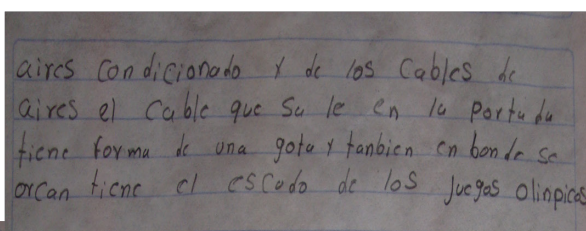 aires condicionado y de los cables de
aires el cable que sale en la portada
tiene forma de una gota y tanbien en bonde se
orcan tiene el escudo de los juegos olinpicos